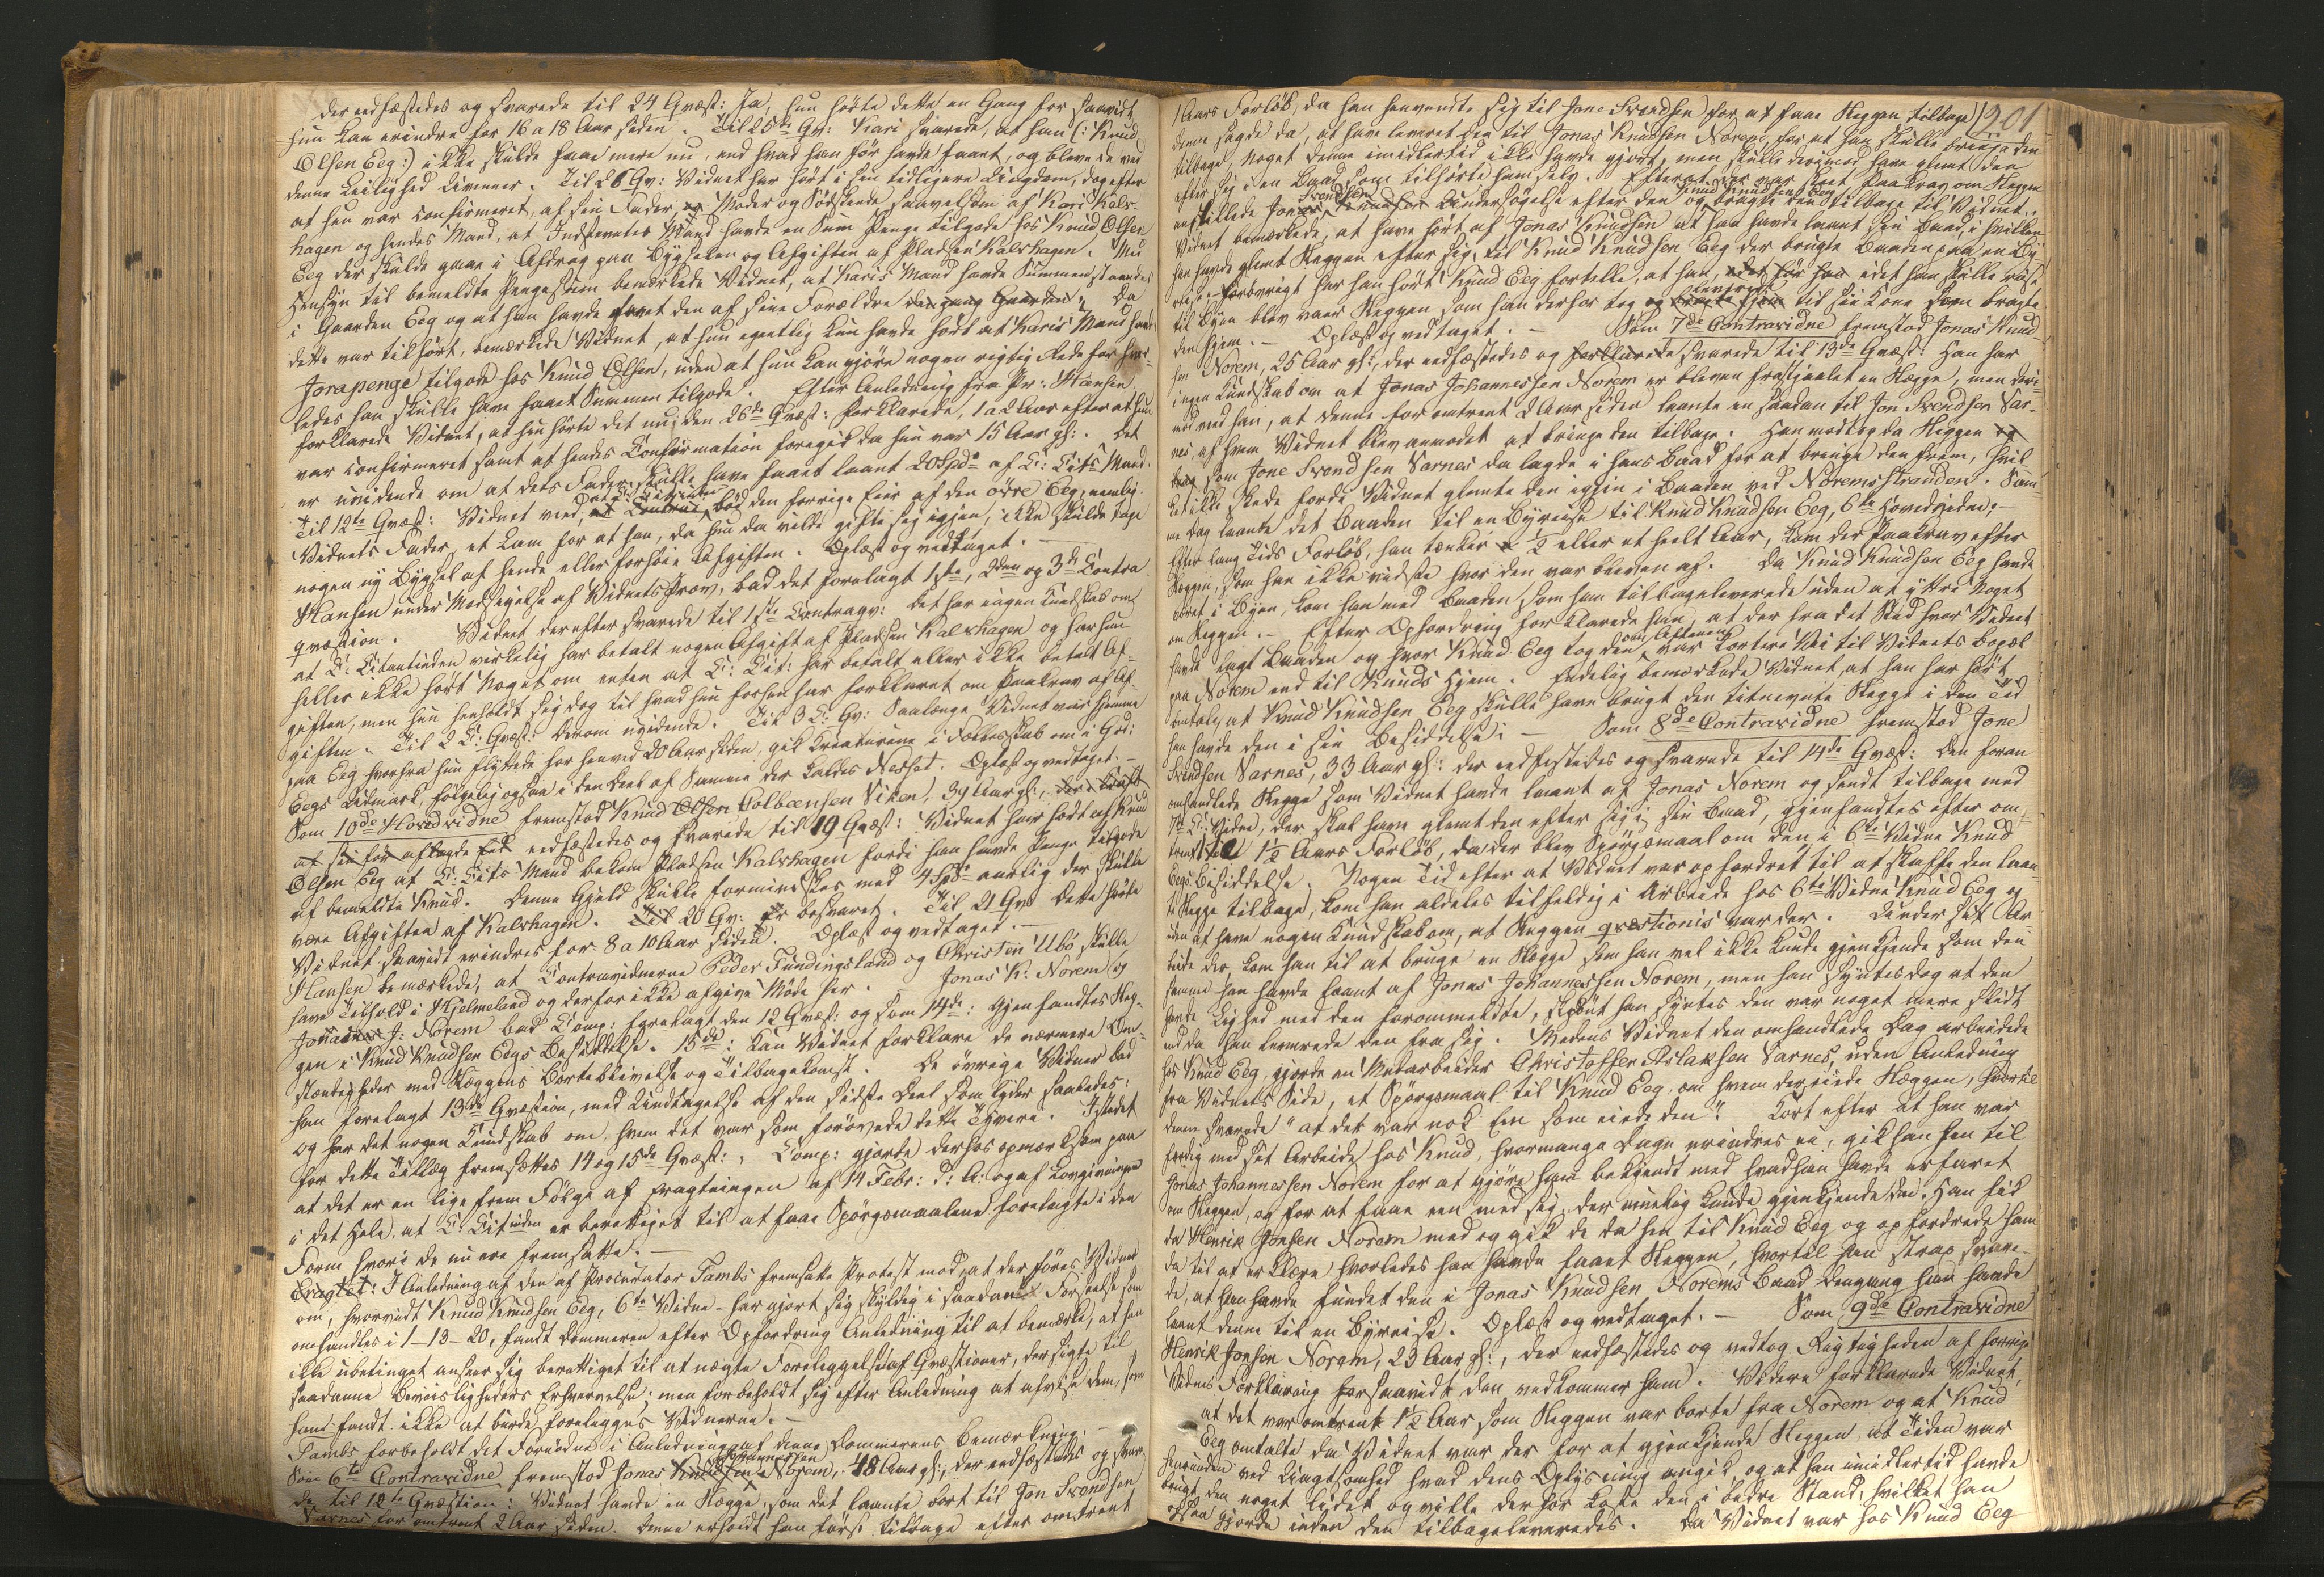 der eedfæstedes og svarede til 24 Qvæst: Ja, hun hörte dette en Gang for saavidt
hun kan erindre for 16 a 18 Aar siden. Til 25de Qv: Kari svarede, at han (: Knud
Olsen Eeg:) ikke skulde faae mere nu, end hvad han för havde faaet, og bleve de ved
denne Leilighed Uvenner. Til 26 Qv: Vidnet har hört i sin tidligere Ungdom, dog efter
at hun var confirmeret, af sin Fader, og Moder og Södskende saavelsom af Kari Kals-
hagen og hendes Mand, at Indstevntes Mand havde en Sum Penge tilgode hos Knud Olsen
Eeg der skulde gaae i Afdrag paa Bygselen og Afgiften af Pladsen Kalshagen. Med
Hensyn til bemeldte Pengesum bemærkede Vidnet, at Karis Mand havde Summen staaende
i Gaarden Eeg og at han havde faaet den af sine Forældre dengang Gaarden. Da
dette var tilfört, bemærkede Vidnet, at hun egentlig kun havde hört at Karis Mand havde
Jorapenge tilgode hos Knud Olsen, uden at hun kan gjöre nogen rigtig Rede for hvor-
ledes han skulle have faaet Summen tilgode. Efter Anledning fra Pr: Hansen
forklarede Vidnet, at hun hörte det nu, den 26de Qvæst: forklarede, 1 a 2 Aar efter at hun
var confirmeret samt at hendes Confirmation foregik da hun var 15 Aar gl:. Det
er uvidende om at dets Fader skulle have faaet laant 20 Spd. af C: Cits Mand.
Til 12te Qvæst: Vidnet veed, at Citantinden bød den forrige Eier af den övre Eeg, nemlig
Vidnets Fader, et Lam for at han, da hun da vilde gifte sig igjen, ikke skulde tage
nogen ny Bygsel af hende eller forhöie Afgiften. Oplæst og vedtaget.
Hansen under Modsigelse af Vidnets Prov, bad det forelagt 1ste, 2den og 3de Contra-
qvæstion. Vidnet derefter svarede til 1ste Contraqv: Det har ingen Kundskab om
at C: Citantinden virkelig har betalt nogen Afgift af Pladsen Kalshagen og har hun
heller ikke hört Noget om enten at C: Cit: har betalt eller ikke betalt Af-
giften, men hun henholdt sig dog til hvad hun forhen har forklaret om Paakrav af Af-
giften. Til 2 C: Qvæst: Derom uvidende. Til 3 C: Qv: Saalænge Vidnet var hjemme
paa Eeg hvorfra hun flyttede for henved 20 Aar siden, gik Kreaturene i Fællesskab om i God:
Eegs Udmark, fölgelig ogsaa i den Deel af Samme der kaldes Nesset. Oplæst og vedtaget.
Som 10de Hovedvidne fremstod Knud Olsen Colbeensen Viken, 39 Aar gl:, der i Kraft
af sin för aflagde Eed eedfæstedes og svarede til 19 Qvæst: Vidnet har hört af Knud
Olsen Eeg at C: Cits Mand bekom Pladsen Kalshagen fordi han havde Penge tilgode
af bemeldte Knud. Denne Gjeld skulle formindskes med 4 Spd. aarlig der skulle
være Afgiften af Kalshagen. Til 20 Qv: Er besvaret. Til 21 Qv: Dette hörte
Vidnet saavidt erindres for 8 a 10 Aar siden. Oplæst og vedtaget.
Hansen bemærkede, at Contravidnerne Peder Fundingsland og Christen Ubö skulle
have Tilhold i Hjelmeland og derfor ikke afgive Möde her. Jonas K: Norem og
Johannes J: Norem bad Comp: forelagt den 12 Qvæst: og som 14de: Gjenfandtes Heg-
gen i Knud Knudsen Eegs Besiddelse. 15de: Kan Vidnet forklare de nærmere Om-
stændigheder med Hæggens Borteblivelse og Tilbagekomst. De övrige Vidner bad
han forelagt 13de Qvæstion, med Undtagelse af den sidste Deel som lyder saaledes:
og har det nogen Kundskab om, hvem det var som forövede dette Tyverie. Istedet
for dette Tillæg fremsættes 14 og 15de Qvæst:. Comp: gjorde derhos opmærksom paa
at det er en ligefrem Fölge af Fragtningen af 14 Febr: d: A: og af Lovgivningen
i det Hele, at C: Citinden er berettiget til at faae Spörgsmaalene forelagte i den
Form hvori de nu ere fremsatte.
Eragtet: I Anledning af den af Procurator Tambs fremsatte Protest mod, at der föres Vidner
om, hvorvidt Knud Knudsen Eeg, 6te Vidne – har gjort sig skyldig i saadan Forseelse som
omhandles i 1–13–20, fandt Dommeren efter Opfordring Anledning til at bemærke, at han
ikke ubetinget anseer sig berettiget til at nægte Foreliggelse af Qvæstioner, der sigte til
saadanne Beviisligheders Erhvervelse; men forbeholdt sig efter Anledning at afvise dem, som
han fandt ikke at burde forelægges Vidnerne.
Tambs forbeholdt det Fornödne i Anledning af denne Dommerens Bemærkning.
Som 6te Contravidne fremstod Jonas Knudsen Johannessen Norem, 48 Aar gl:, der eedfæstedes og svare-
de til 12te Qvæstion: Vidnet havde en Hægge, som det laante bort til Jon Svendsen
Sarnes for omtrent 2 Aar siden. Denne erholdt han först tilbage efter omtrent
201
1 Aars Forlöb, da han henvendte sig til Jone Svendsen for at faae Heggen tilbage)
denne sagde da, at have leveret den til Jonas Knudsen Norem for at han skulle bringe den
tilbage, noget denne imidlertid ikke havde gjort, men skulle derimod have glemt den
efter sig i en Baad som tilhörte ham selv. Efterat der var skeet Paakrav om Heggen
anstillede Jonas Knudsen Svendsen Undersögelse efter den og Knud Knudsen Eeg bragte den tilbage til Vidnet.
Vidnet bemærkede, at have hört af Jonas Knudsen at han havde laant sin Baad, i hvilken
han havde glemt Heggen efter sig, til Knud Knudsen Eeg der brugte Baaden paa en By-
reise. Forövrigt har han hört Knud Eeg fortelle, at han, idet för han idet han skulle reise
til Byen blev vaer Heggen som han derfor tog og bragte hjem leverede til sin Kone som bragte
den hjem. – Oplæst og vedtaget. – Som 7de Contravidne fremstod Jonas Knud-
sen Norem, 25 Aar gl:, der eedfæstedes og forklarede svarede til 13de Qvæst: Han har
ingen Kundskab om at Jonas Johannessen Norem er bleven frastjaalet en Hægge, men deri-
mod veed han, at denne for omtrent 2 Aar siden laante en saadan til Jon Svendsen Sar-
nes, af hvem Vidnet blev anmodet at bringe den tilbage. Han modtog da Heggen og
drog som Jone Svendsen Sarnes da lagde i hans Baad for at bringe den frem, hvil-
ket ikke skede fordi Vidnet glemte den igjen i Baaden ved Noremsstranden. Sam-
me Dag laante det Baaden til en Byreise til Knud Knudsen Eeg, 6te Hovedvidne;
Efter lang Tids Forlöb, han tænker ½ eller et heelt Aar, kom der Paakrav efter
Heggen, som han ikke vidste hvor den var bleven af. Da Knud Knudsen Eeg havde
været i Byen, kom han med Baaden som han tilbageleverede uden at yttre noget
om Heggen. – Efter Opfordring forklarede han, at der fra det Sted hvor Vidnet
havde lagt Baaden og hvor Knud Eeg tog den om Aftenen, var kortere Vei til Vidnets Bopæl
paa Norem end til Knuds Hjem. Endelig bemærkede Vidnet, at han har hört
omtale, at Knud Knudsen Eeg skulle have brugt den titnevnte Hegge i den Tid
han havde den i sin Besiddelse. – Som 8de Contravidne fremstod Jone
Svendsen Sarnes, 33 Aar gl: der eedfæstedes og svarede til 14de Qvæst: Den foran
omhandlede Hegge som Vidnet havde laant af Jonas Norem og sendt tilbage med
7de C: Vidne, der skal have glemt den efter sig i sin Baad, gjenfandtes efter om-
trent 1½ Aars Forlöb, da der blev Spörgsmaal om den, i 6te Vidne Knud
Eegs Besiddelse. Nogen Tid efter at Vidnet var opfordret til at skaffe den laan-
te Hegge tilbage, kom han aldeles tilfeldig i Arbeide hos 6te Vidne Knud Eeg og
uden at have nogen Kundskab om, at Heggen qvæstionis var der. Under sit Ar-
beide der, kom han til at bruge en Hegge som han vel ikke kunde gjenkjende som den
samme han havde laant af Jonas Johannessen Norem, men han syntes dog at den
havde Lighed med den forommeldte, skjönt han syntes den var noget mere slidt
end da han leverede den fra sig. Medens Vidnet den omhandlede Dag arbeidede
hos Knud Eeg, gjorde en Medarbeider Christoffer Aslaksen Sarnes, uden Anledning
fra Vidnets Side, et Spörgsmaal til Knud Eeg om hvem der eiede Heggen, hvortil
denne svarede "at det var nok Een som eiede den". Kort efter at han var
færdig med sit Arbeide hos Knud, hvormange Dage erindres ei, gik han hen til
Jonas Johannessen Norem for at gjöre ham bekjendt med hvad han havde erfaret
om Heggen, og for at faae een med sig, der muelig kunde gjenkjende den. Han fik
da Henrik Jonsen Norem med og gik de da hen til Knud Eeg og opfordrede ham
da til at erklære hvorledes han havde faaet Heggen, hvortil han strax svare-
de, at han havde fundet den i Jonas Knudsen Norems Baad dengang han havde
laant denne til en Byreise. Oplæst og vedtaget. – Som 9de Contravidne
Henrik Jonsen Norem, 23 Aar gl:, der eedfæstedes og vedtog Rigtigheden af forrige
Vidnes Forklaring forsaavidt den vedkommer ham. Videre forklarede Vidnet,
at det var omtrent 1½ Aar som Heggen var borte fra Norem og at Knud
Eeg omtalte da Vidnet var der for at gjenkjende Heggen, at Tiden var
henrunden ved Uagtsomhed hvad dens Oplysning angik, og at han imidlertid havde
brugt den noget lidet og ville derfor koste den i bedre Stand, hvilket han
ogsaa gjorde inden den tilbageleveredes. Da Vidnet var hos Knud Eeg